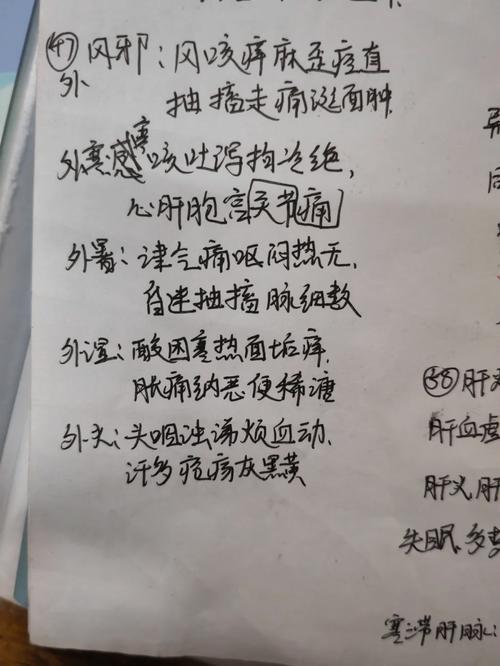 ㊼风邪：风咳痒麻歪痉直
外 抽搐走痛涎面肿
外寒感寒咳吐泻拘冷绝，
心肝胞宫关节痛
外暑：津气痛呕闷热无，
昏迷抽搐脉细数
外湿：酸困寒热面垢痒，
肽痛纳恶便稀溏
外火：头咽浊涕烦血动，
汗多疮疡灰黑黄
㊳肝
肝血虚
肝火肝
失眠、多梦
寒滞肝脉：